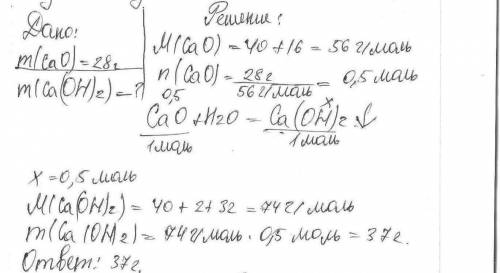 Дано:
m(CaO)=28г
m(Ca(OH)2)=?
Решение:
M(CaO)=40+16=56 г/моль
n(CaO)=28г/56 г/моль=0,5 моль
0,5 x
CaO+H2O=Ca(OH)2↓
1 моль 1 моль
x=0,5 моль
M(Ca(OH)2)=40+2+32=74 г/моль
m(Ca(OH2)=74 г/моль·0,5 моль=37г.
Ответ: 37г.